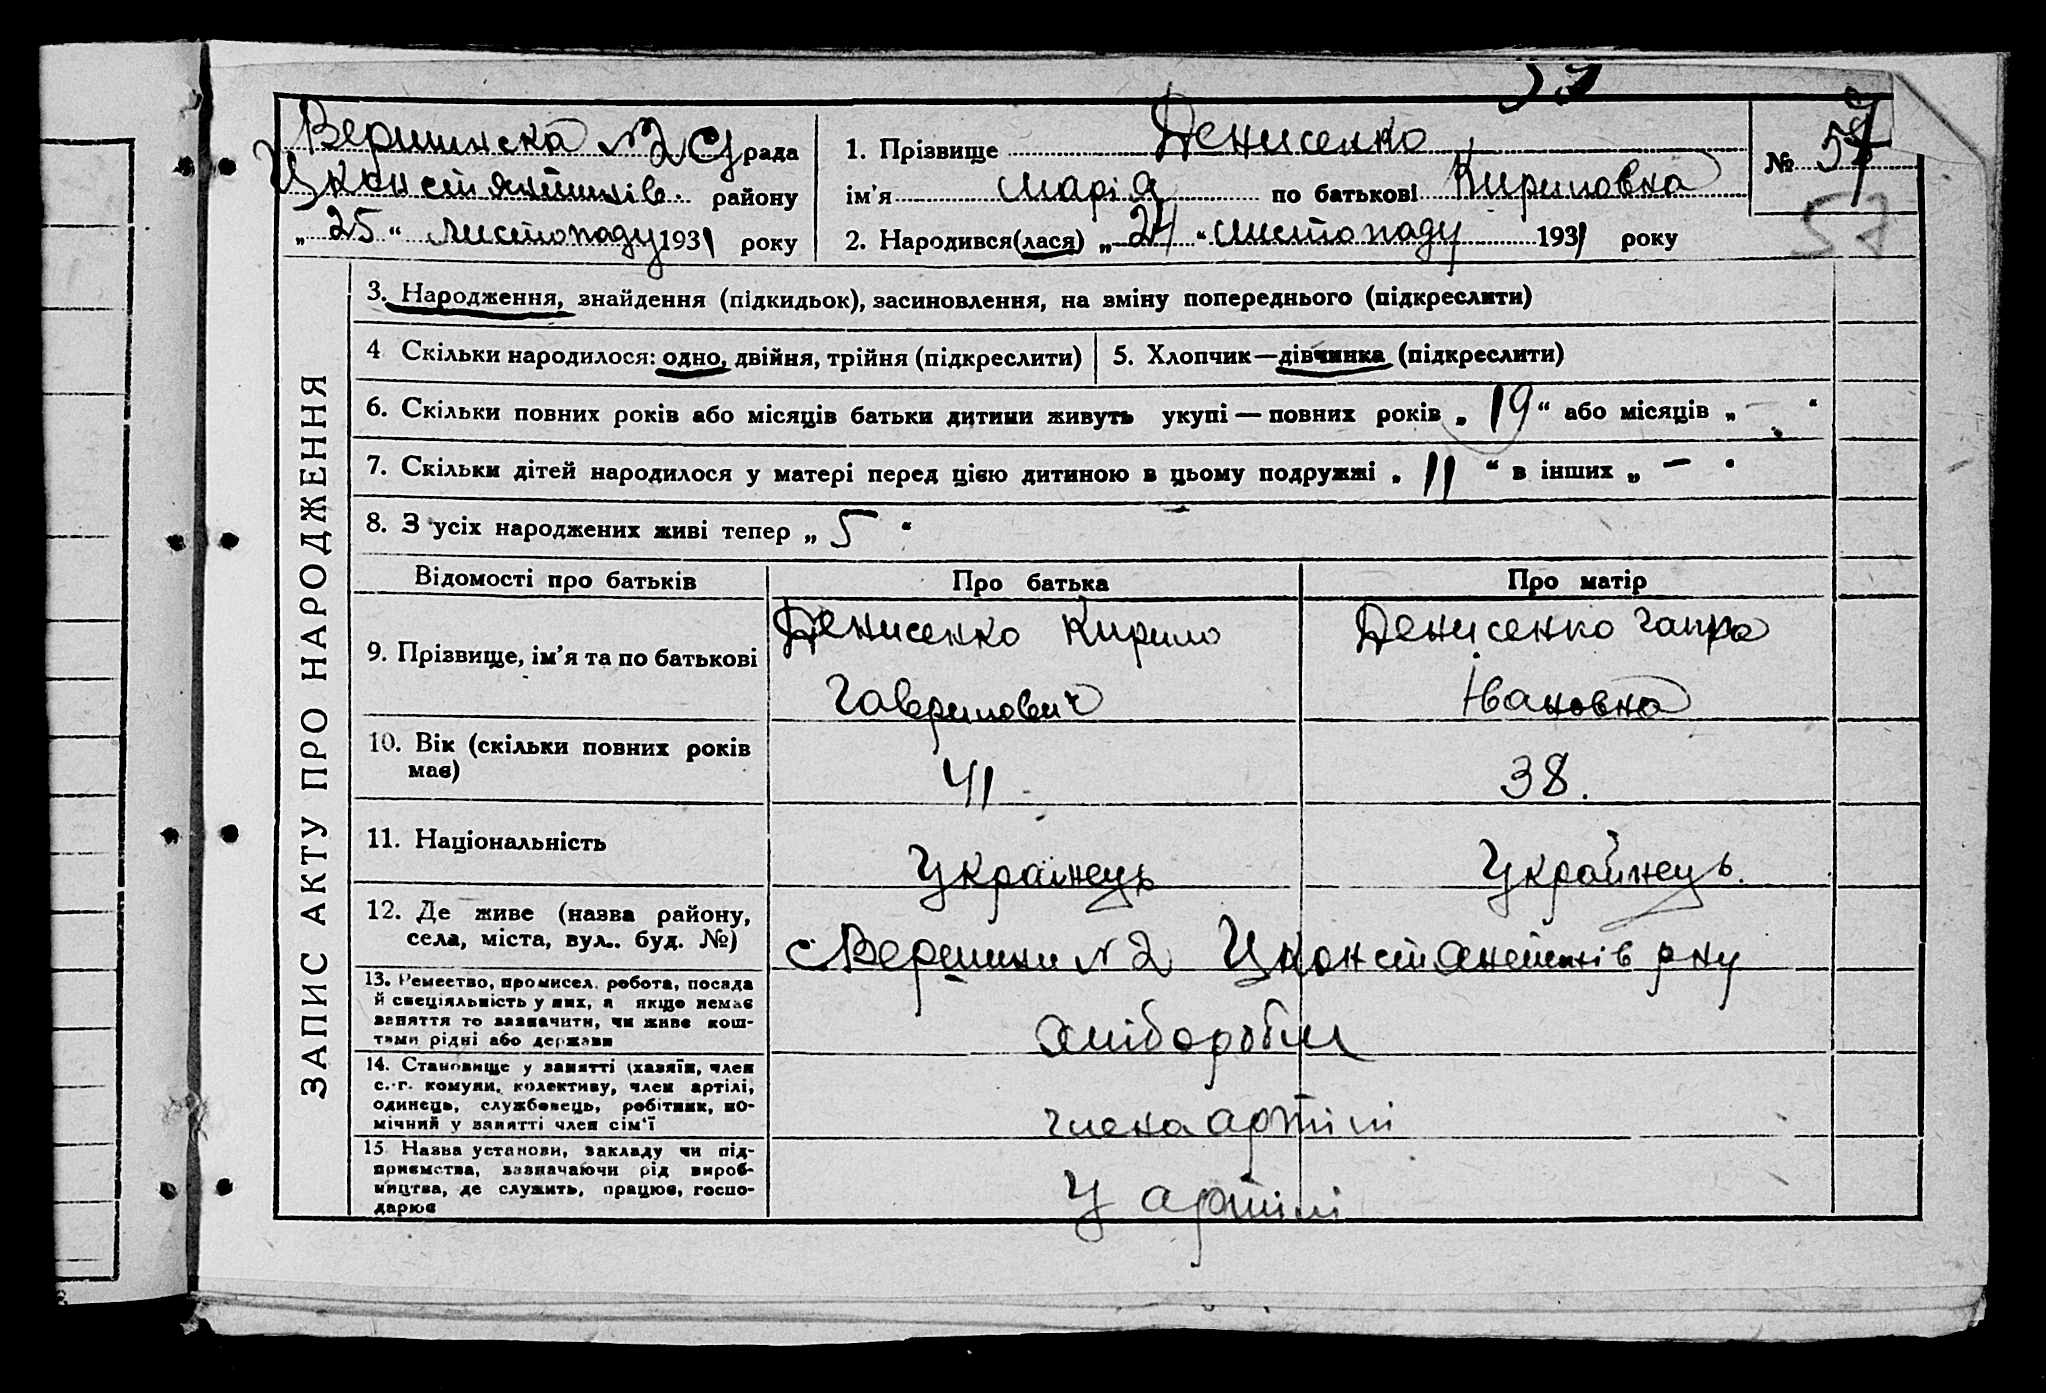 Вершинска №2 с/рада
Цконстянтинів. району
„25“ листопаду 1931 року
1. Прізвище Денисенко
ім’я Марія по батькові Кириловна
2. Народився(лася) „24“ листопаду 1931 року
№ 57
57
ЗАПИС АКТУ ПРО НАРОДЖЕННЯ
3. Народження, знайдення (підкидьок), засиновлення, на зміну попереднього (підкреслити)
4 Скільки народилося: одно, двійня, трійня (підкреслити)
5. Хлопчик—дівчинка (підкреслити)
6. Скільки повних років або місяців батьки дитини живуть укупі — повних років „19“ або місяців „ — “
7. Скільки дітей народилося у матері перед цією дитиною в цьому подружжі „11“ в інших „ — “
8. З усіх народжених живі тепер „5“
Відомості про батьків Про батька Про матір
9. Прізвище, ім’я та по батькові
Денисенко Кирило
Гаврилович
Денисенко Гапка
Івановна
10. Вік (скільки повних років
має)
41
38.
11. Національність
Українець
Українець.
12. Де живе (назва району,
села, міста, вул.. буд. №)
с. Вершини №2 Цконстянтинів рну
13. Ремество, промисел. робота, посада
й спеціяльність у них, а якщо немає
заняття то зазначити, чи живе кош-
тами рідні або держави
хлібороби
14. Становище у занятті (хазяїн, член
с.-г. комуни, колективу, член артілі,
одинець, службовець, робітник, по-
мічний у занятті член сім’ї
члена артілі
15 Назва установи, закладу чи під-
приємства, зазначаючи рід вироб-
ництва, де служить, працює, госпо-
дарює
У артілі